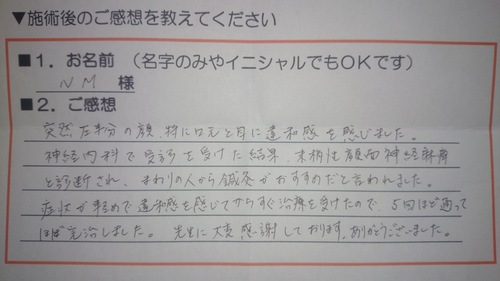 ▼施術後のご感想を教えてください
■1．お名前 （名字のみやイニシャルでもOKです）
NM 様
■2．ご感想
突然左半分の顔、特に口元と目に違和感を感じました。
神経内科で受診を受けた結果、末梢性顔面神経麻痺
と診断され、まわりの人から鍼灸がおすすめだと言われました。
症状が軽めで違和感を感じてからすぐ治療を受けたので、5回ほど通って
ほぼ完治しました。 先生に大変感謝しております。ありがとうございました。